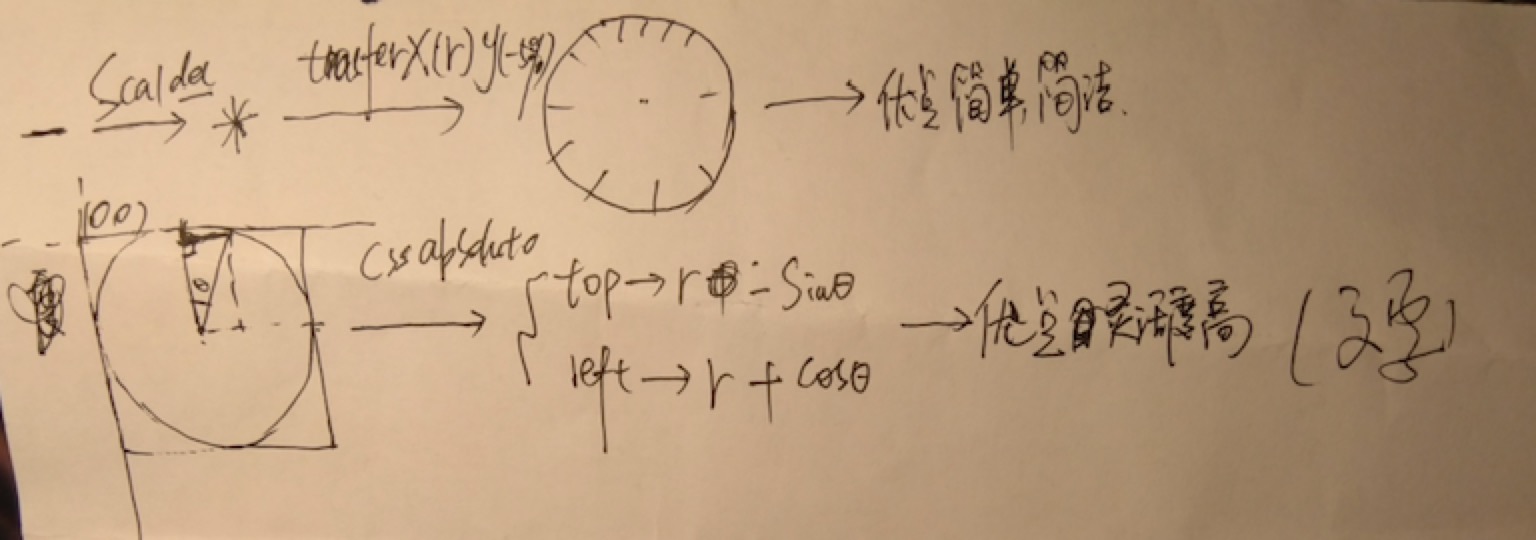 Scalder transferX(r) y(-5%) 优点 简单,简洁.
(00)
css absoluto
top → r - Sinθ
left → r + cosθ
优点 灵活度高 (文字)